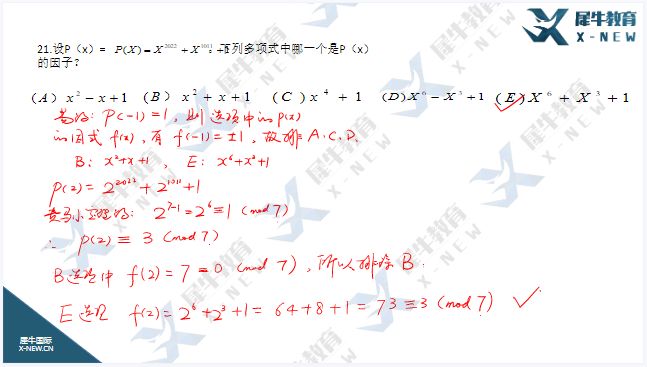 犀牛教育
X-NEW
21.设P（x）= P(X)=X^2022+X^1011+1。下列多项式中哪一个是P（x）
的因子？
(A) x^2-x+1 (B) x^2+x+1 (C) x^4+1 (D) X^6-X^3+1 (E) X^6+X^3+1
易得: P(-1)=1, 则选项中的P(x)
的因式 f(x), 有 f(-1)=±1, 故排除 A.C.D.
B: x^2+x+1, E: x^6+x^3+1
P(2)=2^2022+2^1011+1
费马小定理得: 2^7-1=2^6≡1 (mod 7)
∴ P(2)≡3 (mod 7)
B选项中 f(2)=7≡0 (mod 7), 所以排除 B.
E选项 f(2)=2^6+2^3+1=64+8+1=73≡3 (mod 7) ✓
犀牛国际
X-NEW.CN